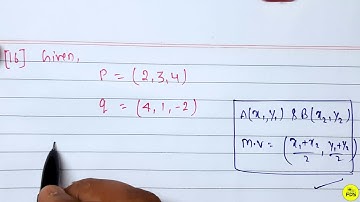 [16] Given,
P = (2,3,4)
q = (4,1,-2)
A(x₁,y₁) & B(x₂,y₂)
M.V = (x₁+x₂/2, y₁+y₂/2)
PDS